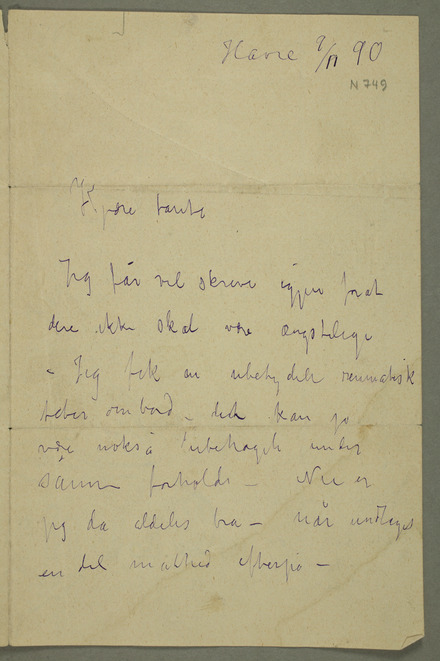 Havre 9/11 90
N 749
Kjære tante
Jeg får vel skrive igjen forat
dere ikke skal være ængstelige
– Jeg fik en ubetydelig reumatisk
feber ombord – det kan jo
være nokså ubehagelig under
sånne forholde – Nu er
jeg da aldeles bra – når undtages
en del mathed efterpå –